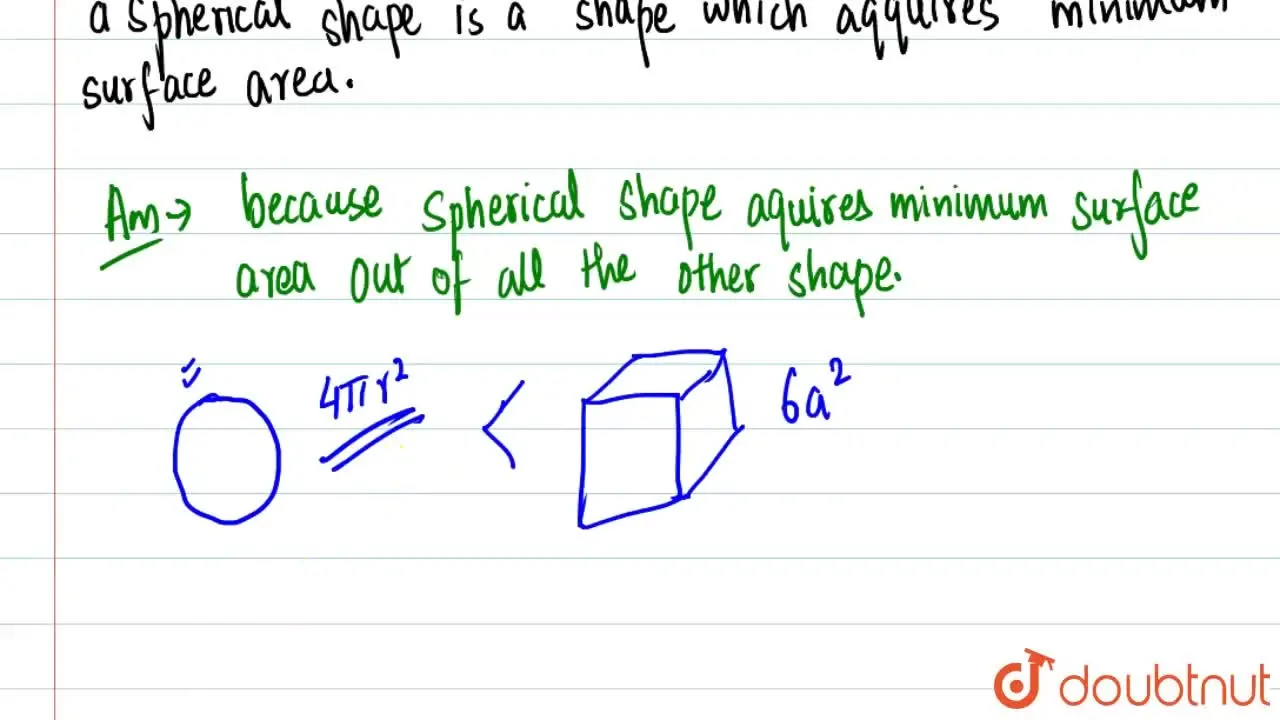 a spherical shape is a shape which aqquires minimum
surface area.
Ans → because spherical shape aquires minimum surface
area out of all the other shape.
4πr² < 6a²
doubtnut